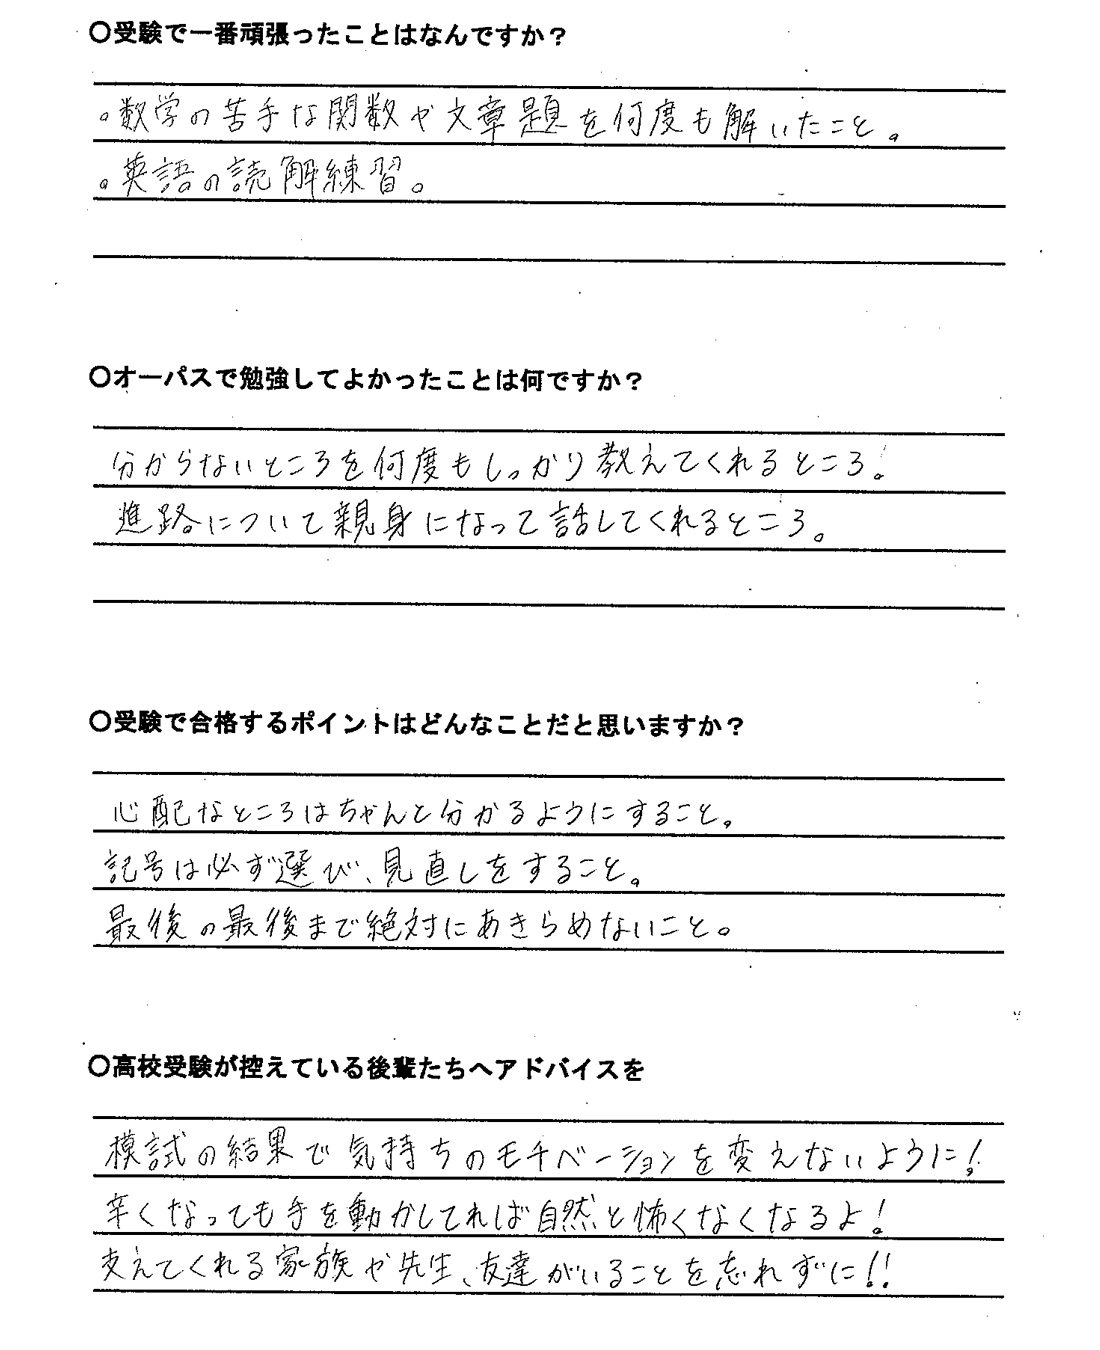 〇受験で一番頑張ったことはなんですか？
。数学の苦手な関数や文章題を何度も解いたこと。
。英語の読解練習。
〇オーパスで勉強してよかったことは何ですか？
分からないところを何度もしっかり教えてくれるところ。
進路について親身になって話してくれるところ。
〇受験で合格するポイントはどんなことだと思いますか？
心配なところはちゃんと分かるようにすること。
記号は必ず選び、見直しをすること。
最後の最後まで絶対にあきらめないこと。
〇高校受験が控えている後輩たちへアドバイスを
模試の結果で気持ちのモチベーションを変えないように！
辛くなっても手を動かしてれば自然と怖くなくなるよ！
支えてくれる家族や先生、友達がいることを忘れずに！！